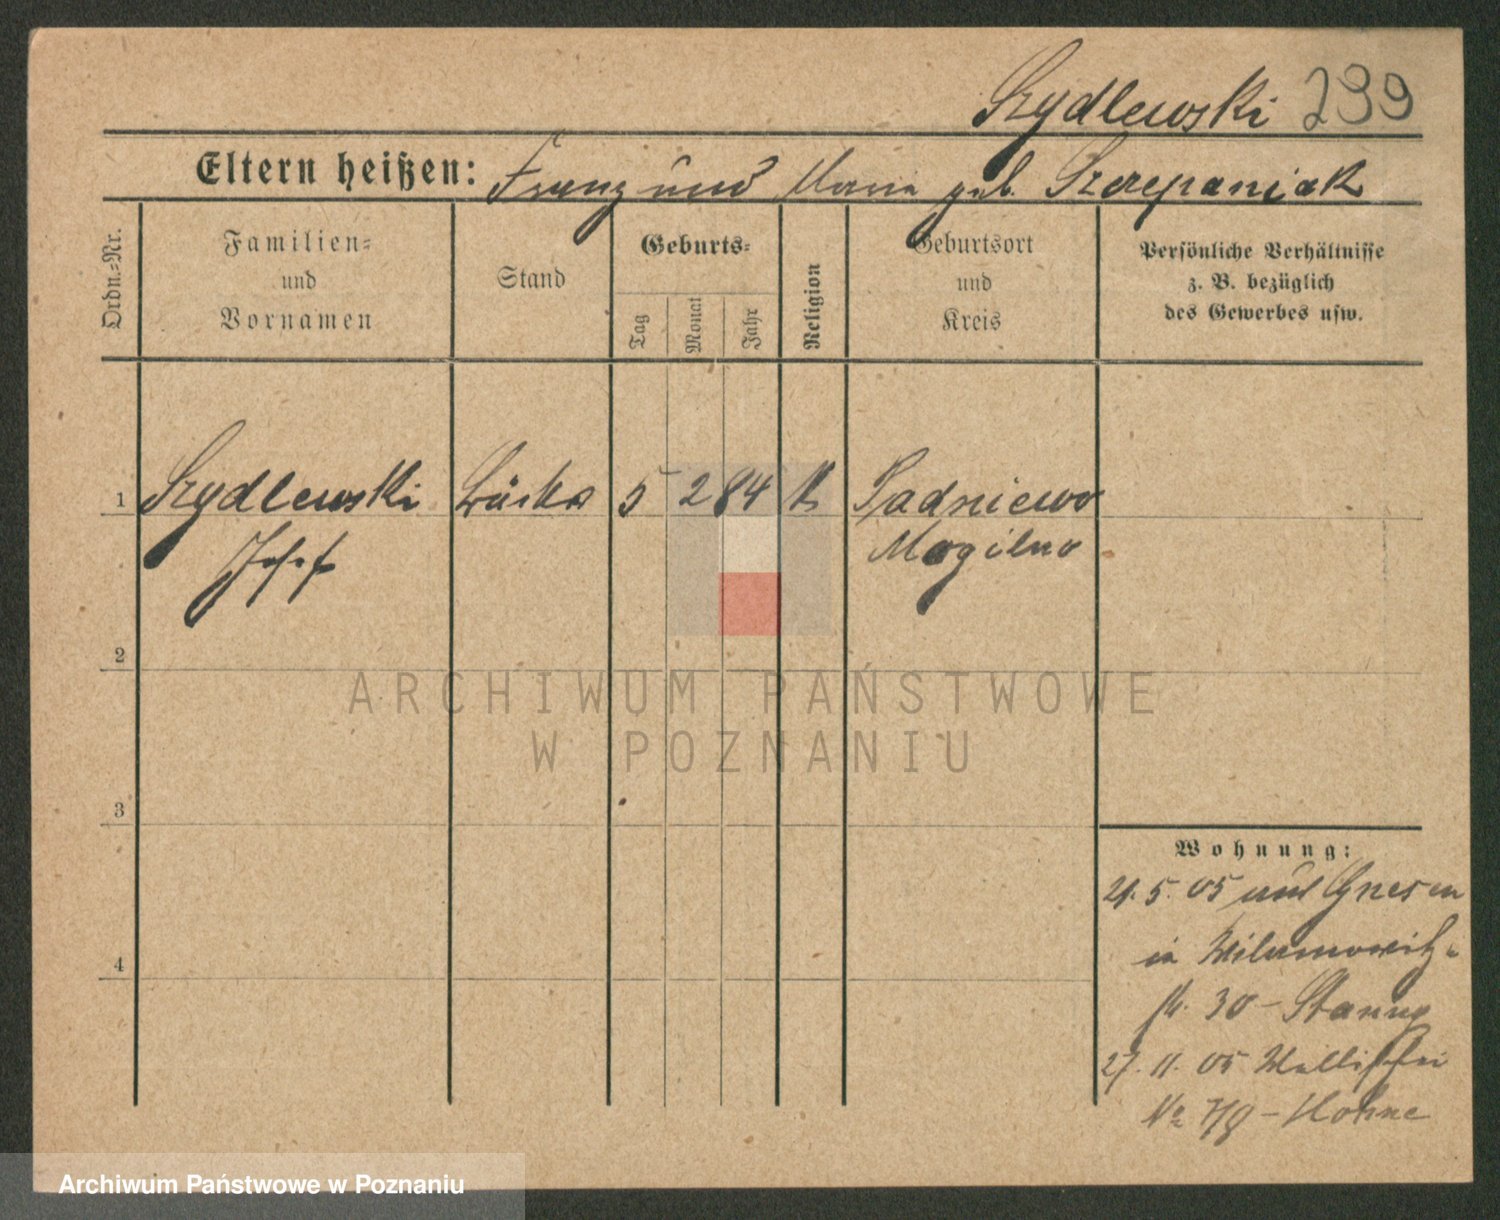 Szydlewski 299
Eltern heißen: Franz und Maria geb. Szczepaniak
Ordn.=Nr.
Familien=
und
Vornamen
Stand
Geburts=
Tag
Monat
Jahr
Religion
Geburtsort
und
Kreis
Persönliche Verhältnisse
z. B. bezüglich
des Gewerbes usw.
1 Szydlewski 5 2 84 K Padniewo
Josef Mogilno
2
3
4
ARCHIWUM PAŃSTWOWE
W POZNANIU
Wohnung:
21. 5. 05 aus Gnesen
in Wilamowitz=
st. 30 -
27. 11. 05
No 7/8 -
Archiwum Państwowe w Poznaniu